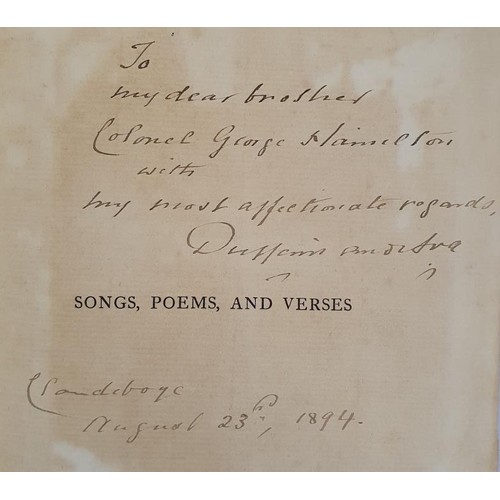 To
my dear brother
Colonel George Hamilton
with
my most affectionate regards,
Dufferin and Ava
SONGS, POEMS, AND VERSES
Clandeboye
August 23rd, 1894.